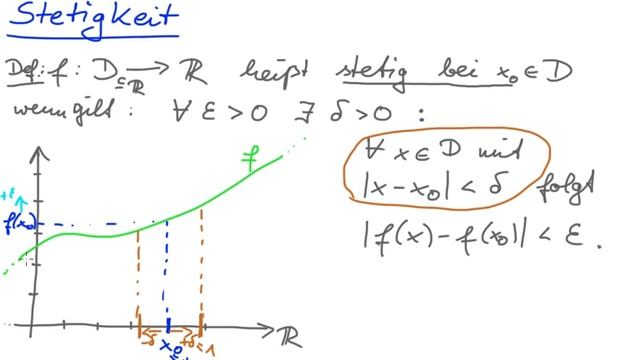 Stetigkeit
Def: f: D ⊆ℝ → ℝ heißt stetig bei x₀ ∈ D
wenn gilt: ∀ ε > 0 ∃ δ > 0 :
∀ x ∈ D mit
|x - x₀| < δ folgt
|f(x) - f(x₀)| < ε.
f
+ε
f(x₀)
-δ x₀ +δ=1 ℝ